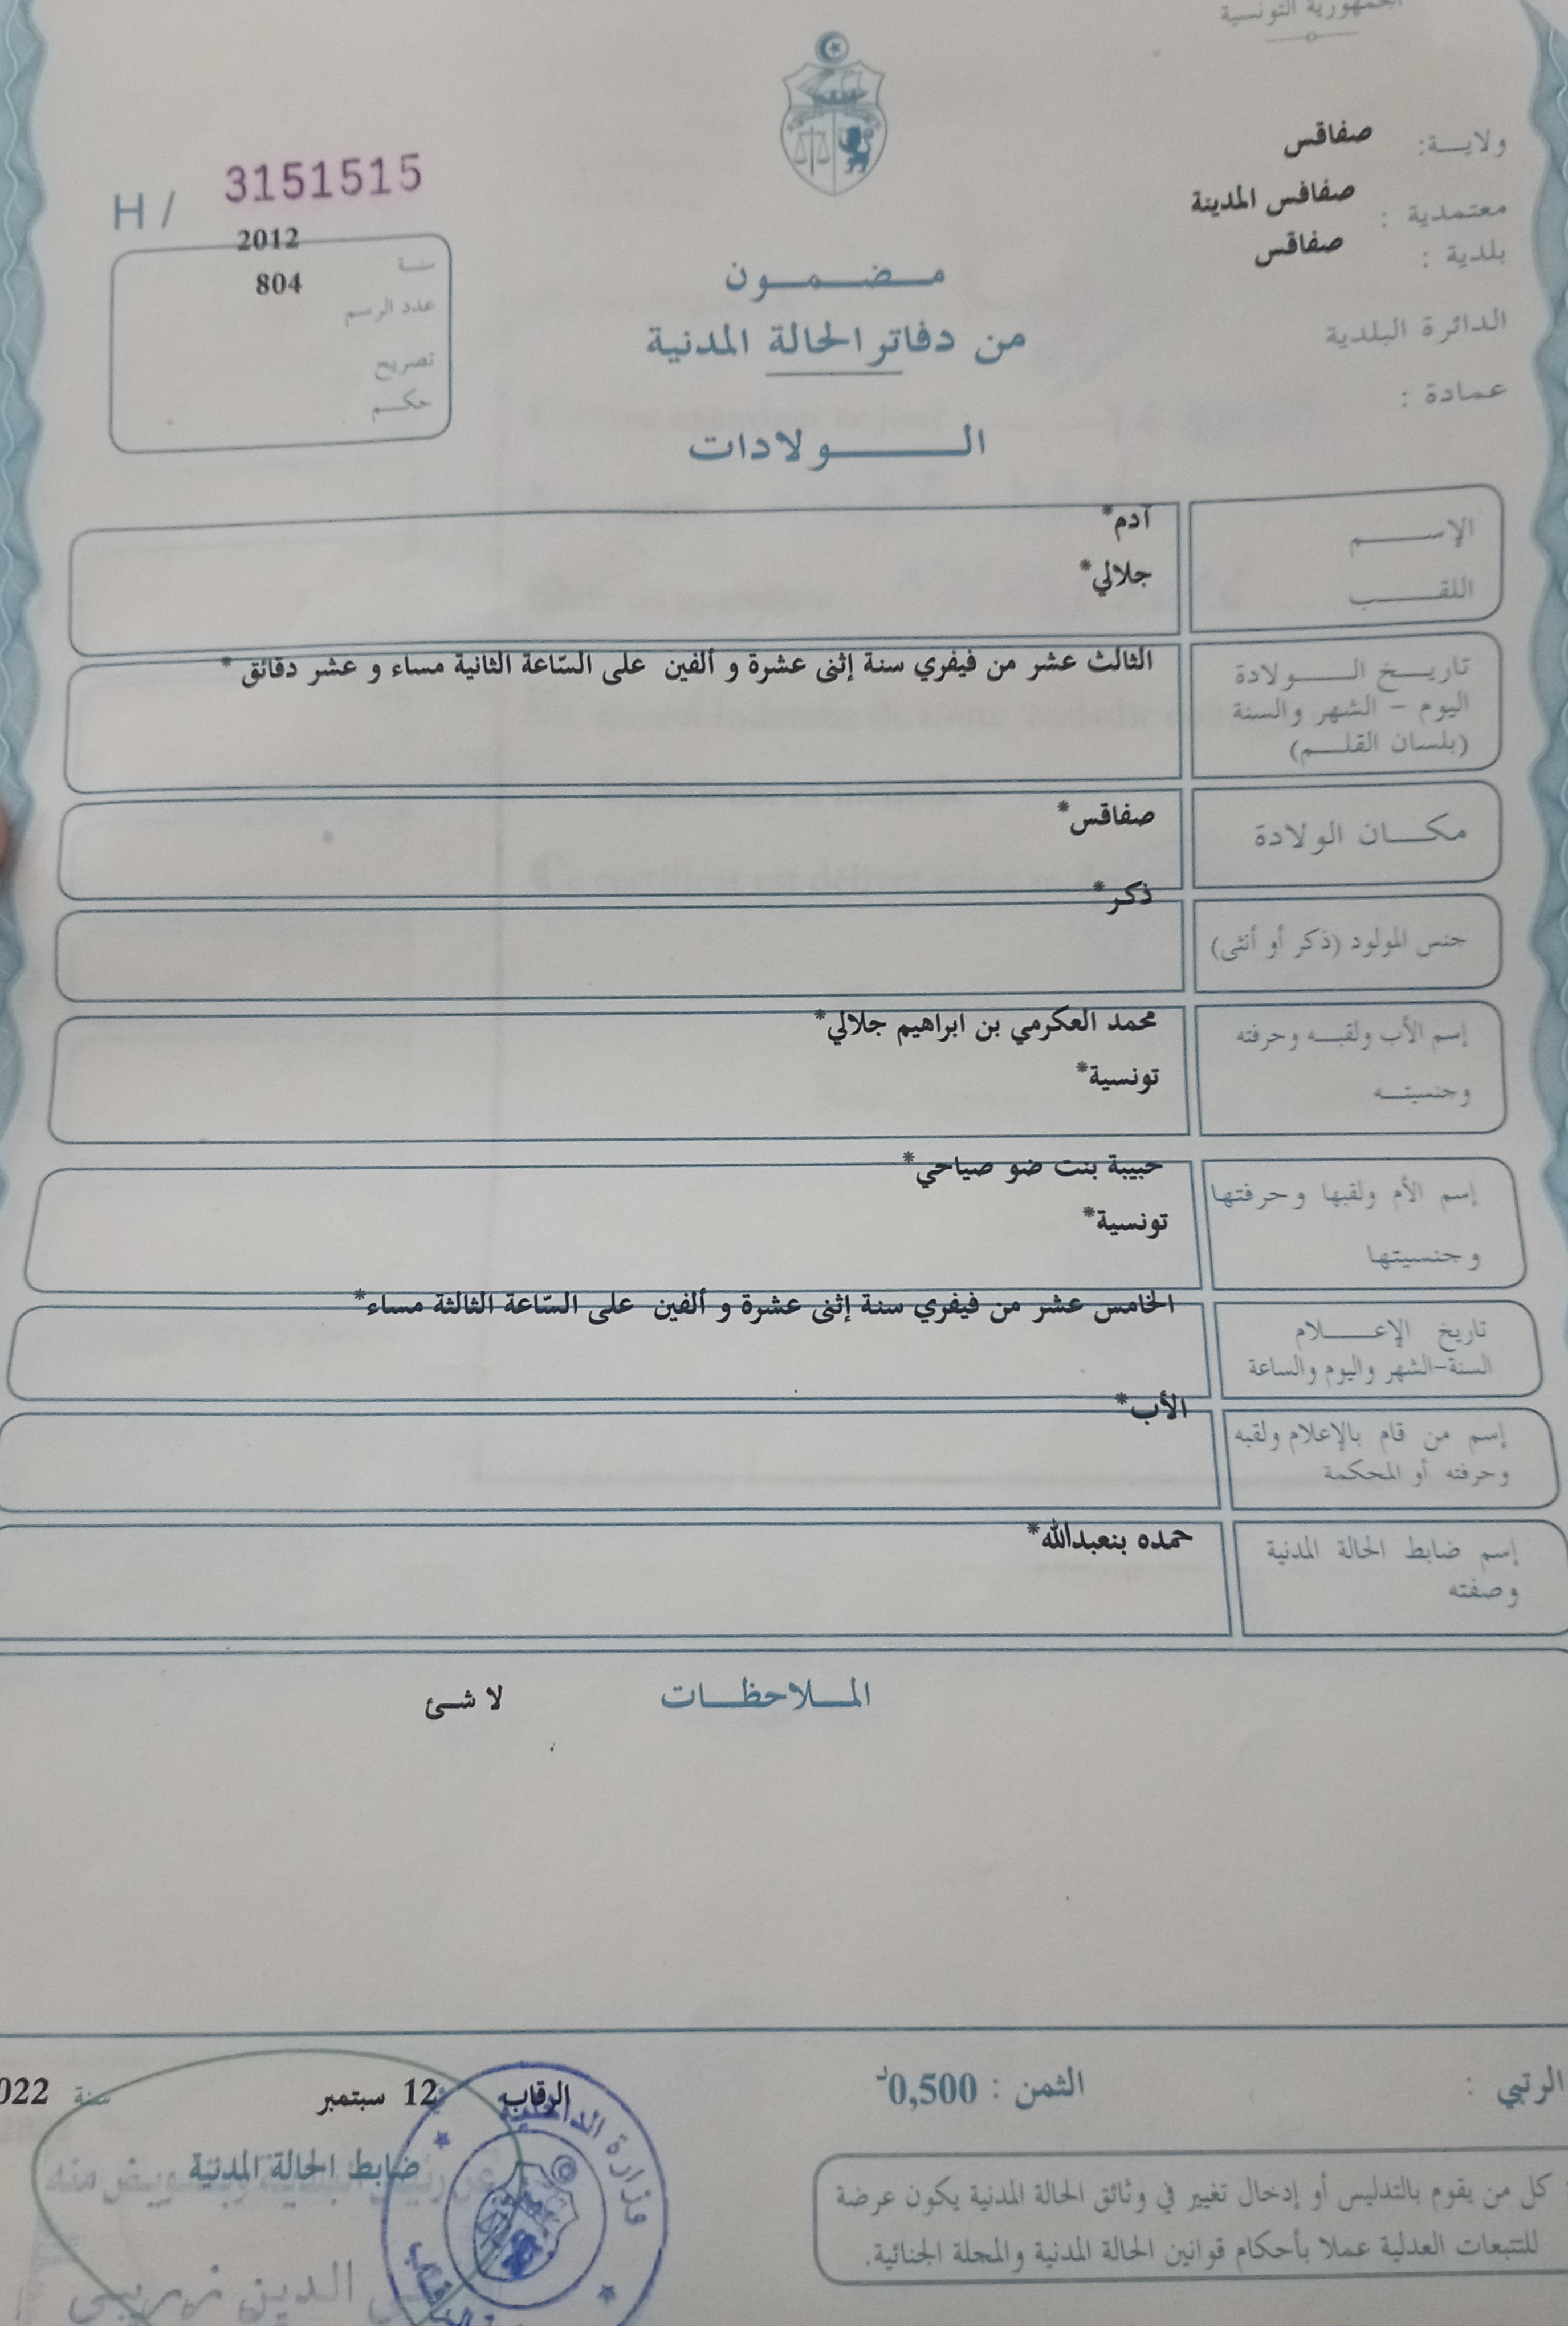 الجمهورية التونسية
ولاية: صفاقس
معتمدية : صفاقس المدينة
بلدية : صفاقس
الدائرة البلدية
عمادة :
H / 3151515
سنة 2012
عدد الرسم 804
تصريح
حكم
مضمون
من دفاتر الحالة المدنية
الولادات
الإسم آدم*
اللقب جلالي*
تاريخ الولادة الثالث عشر من فيفري سنة إثنى عشرة و ألفين على السّاعة الثانية مساء و عشر دقائق *
اليوم - الشهر والسنة
(بلسان القلم)
مكان الولادة صفاقس*
جنس المولود (ذكر أو أنثى) ذكر*
إسم الأب ولقبه وحرفته محمد العكرمي بن ابراهيم جلالي*
وجنسيته تونسية*
إسم الأم ولقبها وحرفتها حبيبة بنت ضو صياحي*
وجنسيتها تونسية*
تاريخ الإعلام الخامس عشر من فيفري سنة إثنى عشرة و ألفين على السّاعة الثالثة مساء*
السنة-الشهر واليوم والساعة
إسم من قام بالإعلام ولقبه الأب*
وحرفته أو المحكمة
إسم ضابط الحالة المدنية حمده بنعبدالله*
وصفته
الملاحظات لا شئ
الرتبي : الثمن : 0,500د
الرقاب في 12 سبتمبر سنة 022
ضابط الحالة المدنية
عن رئيس البلدية وبتفويض منه
الدين زريبي
وزارة الداخلية
كل من يقوم بالتدليس أو إدخال تغيير في وثائق الحالة المدنية يكون عرضة
للتتبعات العدلية عملا بأحكام قوانين الحالة المدنية والمجلة الجنائية.